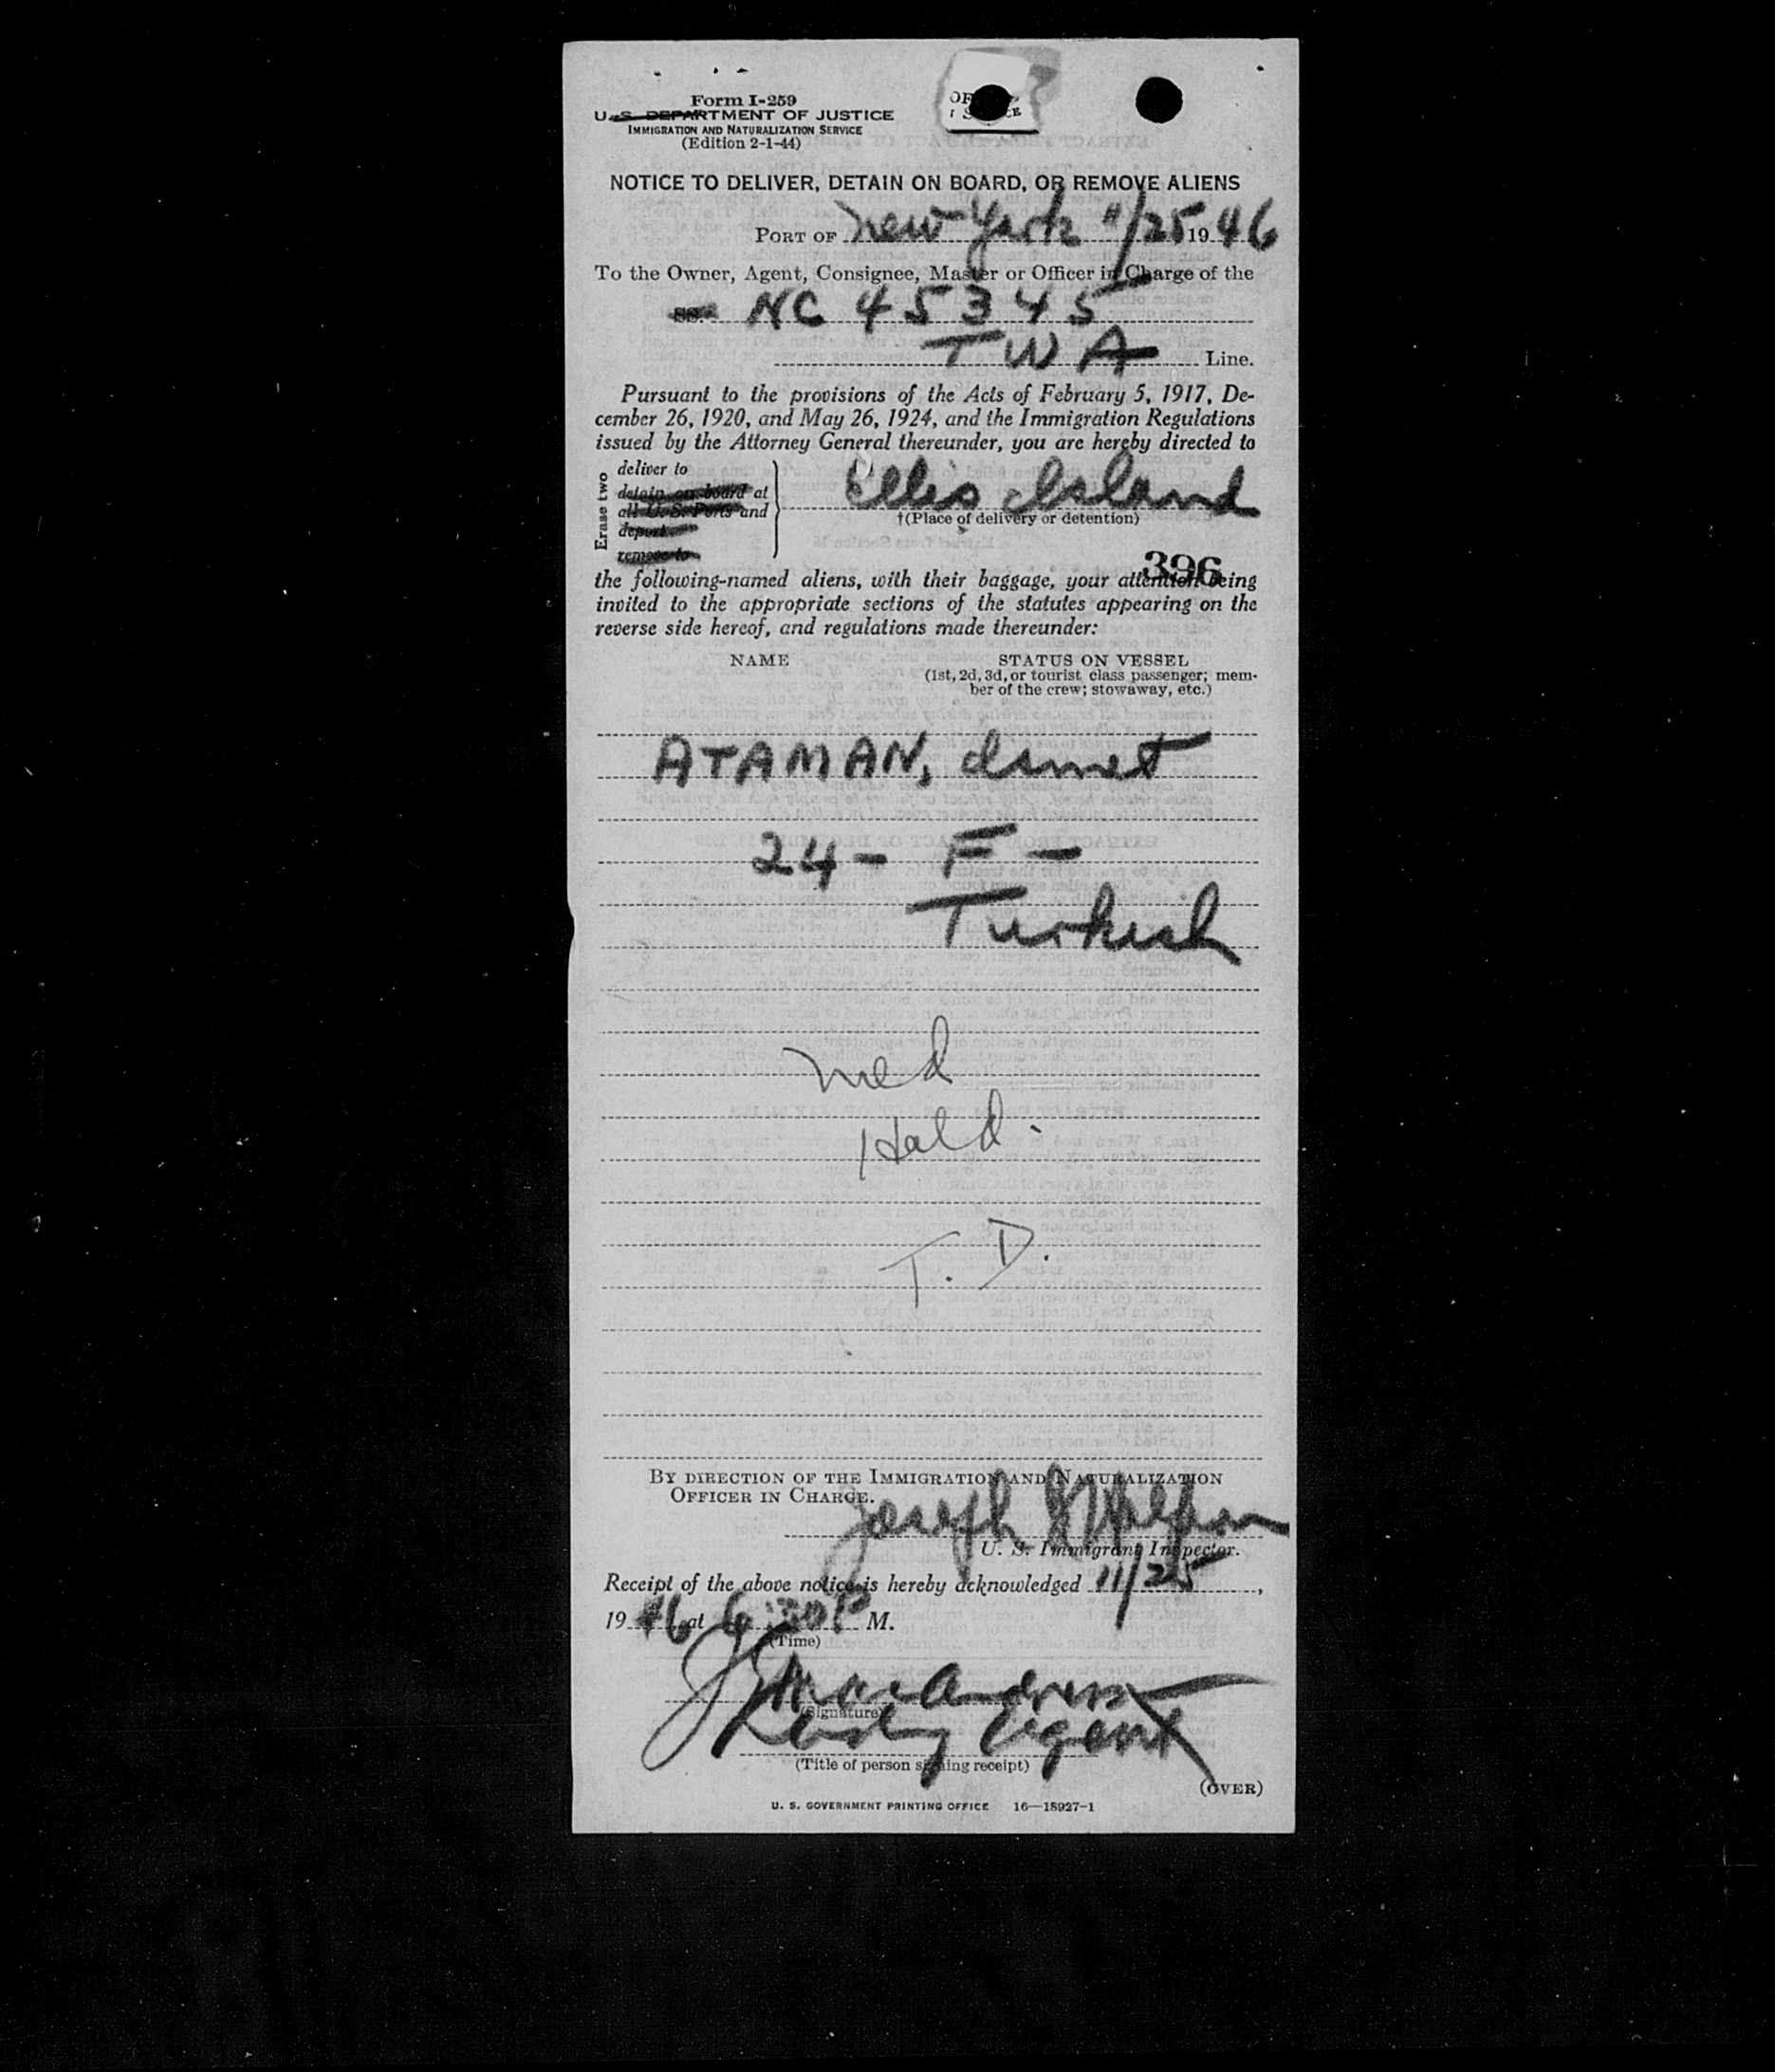 Form I-259
U. S. DEPARTMENT OF JUSTICE
IMMIGRATION AND NATURALIZATION SERVICE
(Edition 2-1-44)
NOTICE TO DELIVER, DETAIN ON BOARD, OR REMOVE ALIENS
PORT OF New York 11/25 19 46
To the Owner, Agent, Consignee, Master or Officer in Charge of the
SS. NC 45345
TWA Line.
Pursuant to the provisions of the Acts of February 5, 1917, De-
cember 26, 1920, and May 26, 1924, and the Immigration Regulations
issued by the Attorney General thereunder, you are hereby directed to
Erase two
deliver to
detain on board at
all U. S. Ports and
deport
remove to
Ellis Island
†(Place of delivery or detention)
396
the following-named aliens, with their baggage, your attention being
invited to the appropriate sections of the statutes appearing on the
reverse side hereof, and regulations made thereunder:
NAME STATUS ON VESSEL
(1st, 2d, 3d, or tourist class passenger; mem-
ber of the crew; stowaway, etc.)
ATAMAN, Ismet
24 - F -
Turkish
Med
Hold.
T. D.
BY DIRECTION OF THE IMMIGRATION AND NATURALIZATION
OFFICER IN CHARGE.
Joseph
U. S. Immigrant Inspector.
Receipt of the above notice is hereby acknowledged 11/25,
19 46 at 6:30 P M.
(Time)
(Signature)
Agent
(Title of person signing receipt)
(OVER)
U. S. GOVERNMENT PRINTING OFFICE 16—18927-1